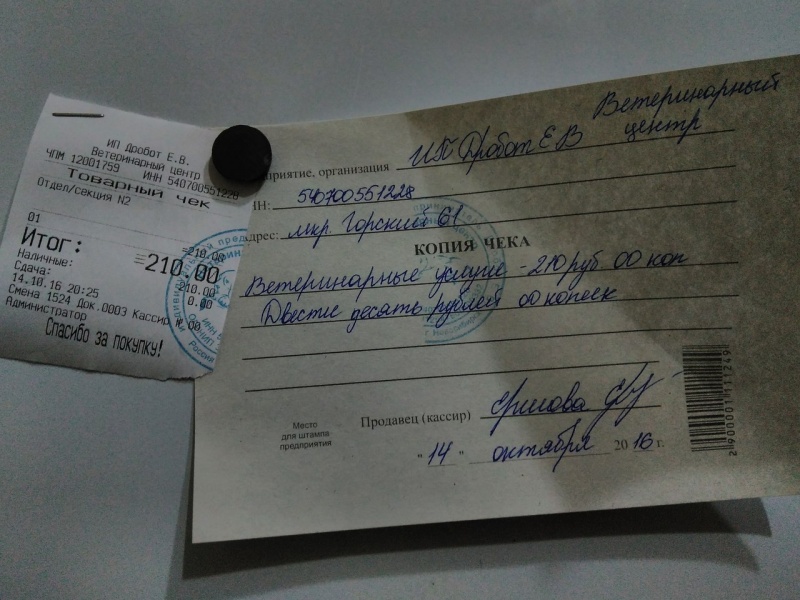 ИП Дробот Е.В.
Ветеринарный центр
ЧПМ 12001759 ИНН 540700551228
Товарный чек
Отдел/секция N2
01 =210.00
Итог: ≡210.00
Наличные: =210.00
Сдача: 0.00
14.10.16 20:25
Смена 1524 Док.0003 Кассир
Администратор
Спасибо за покупку!
Ветеринарный
приятие, организация ИП Дробот Е В центр
ИН: 540700551228
дрес: мкр Горский 61
КОПИЯ ЧЕКА
Ветеринарные услуги - 210 руб 00 коп
Двести десять рублей 00 копеек
Место
для штампа
предприятия
Продавец (кассир)
"14" октября 2016 г.
2 900001 111249